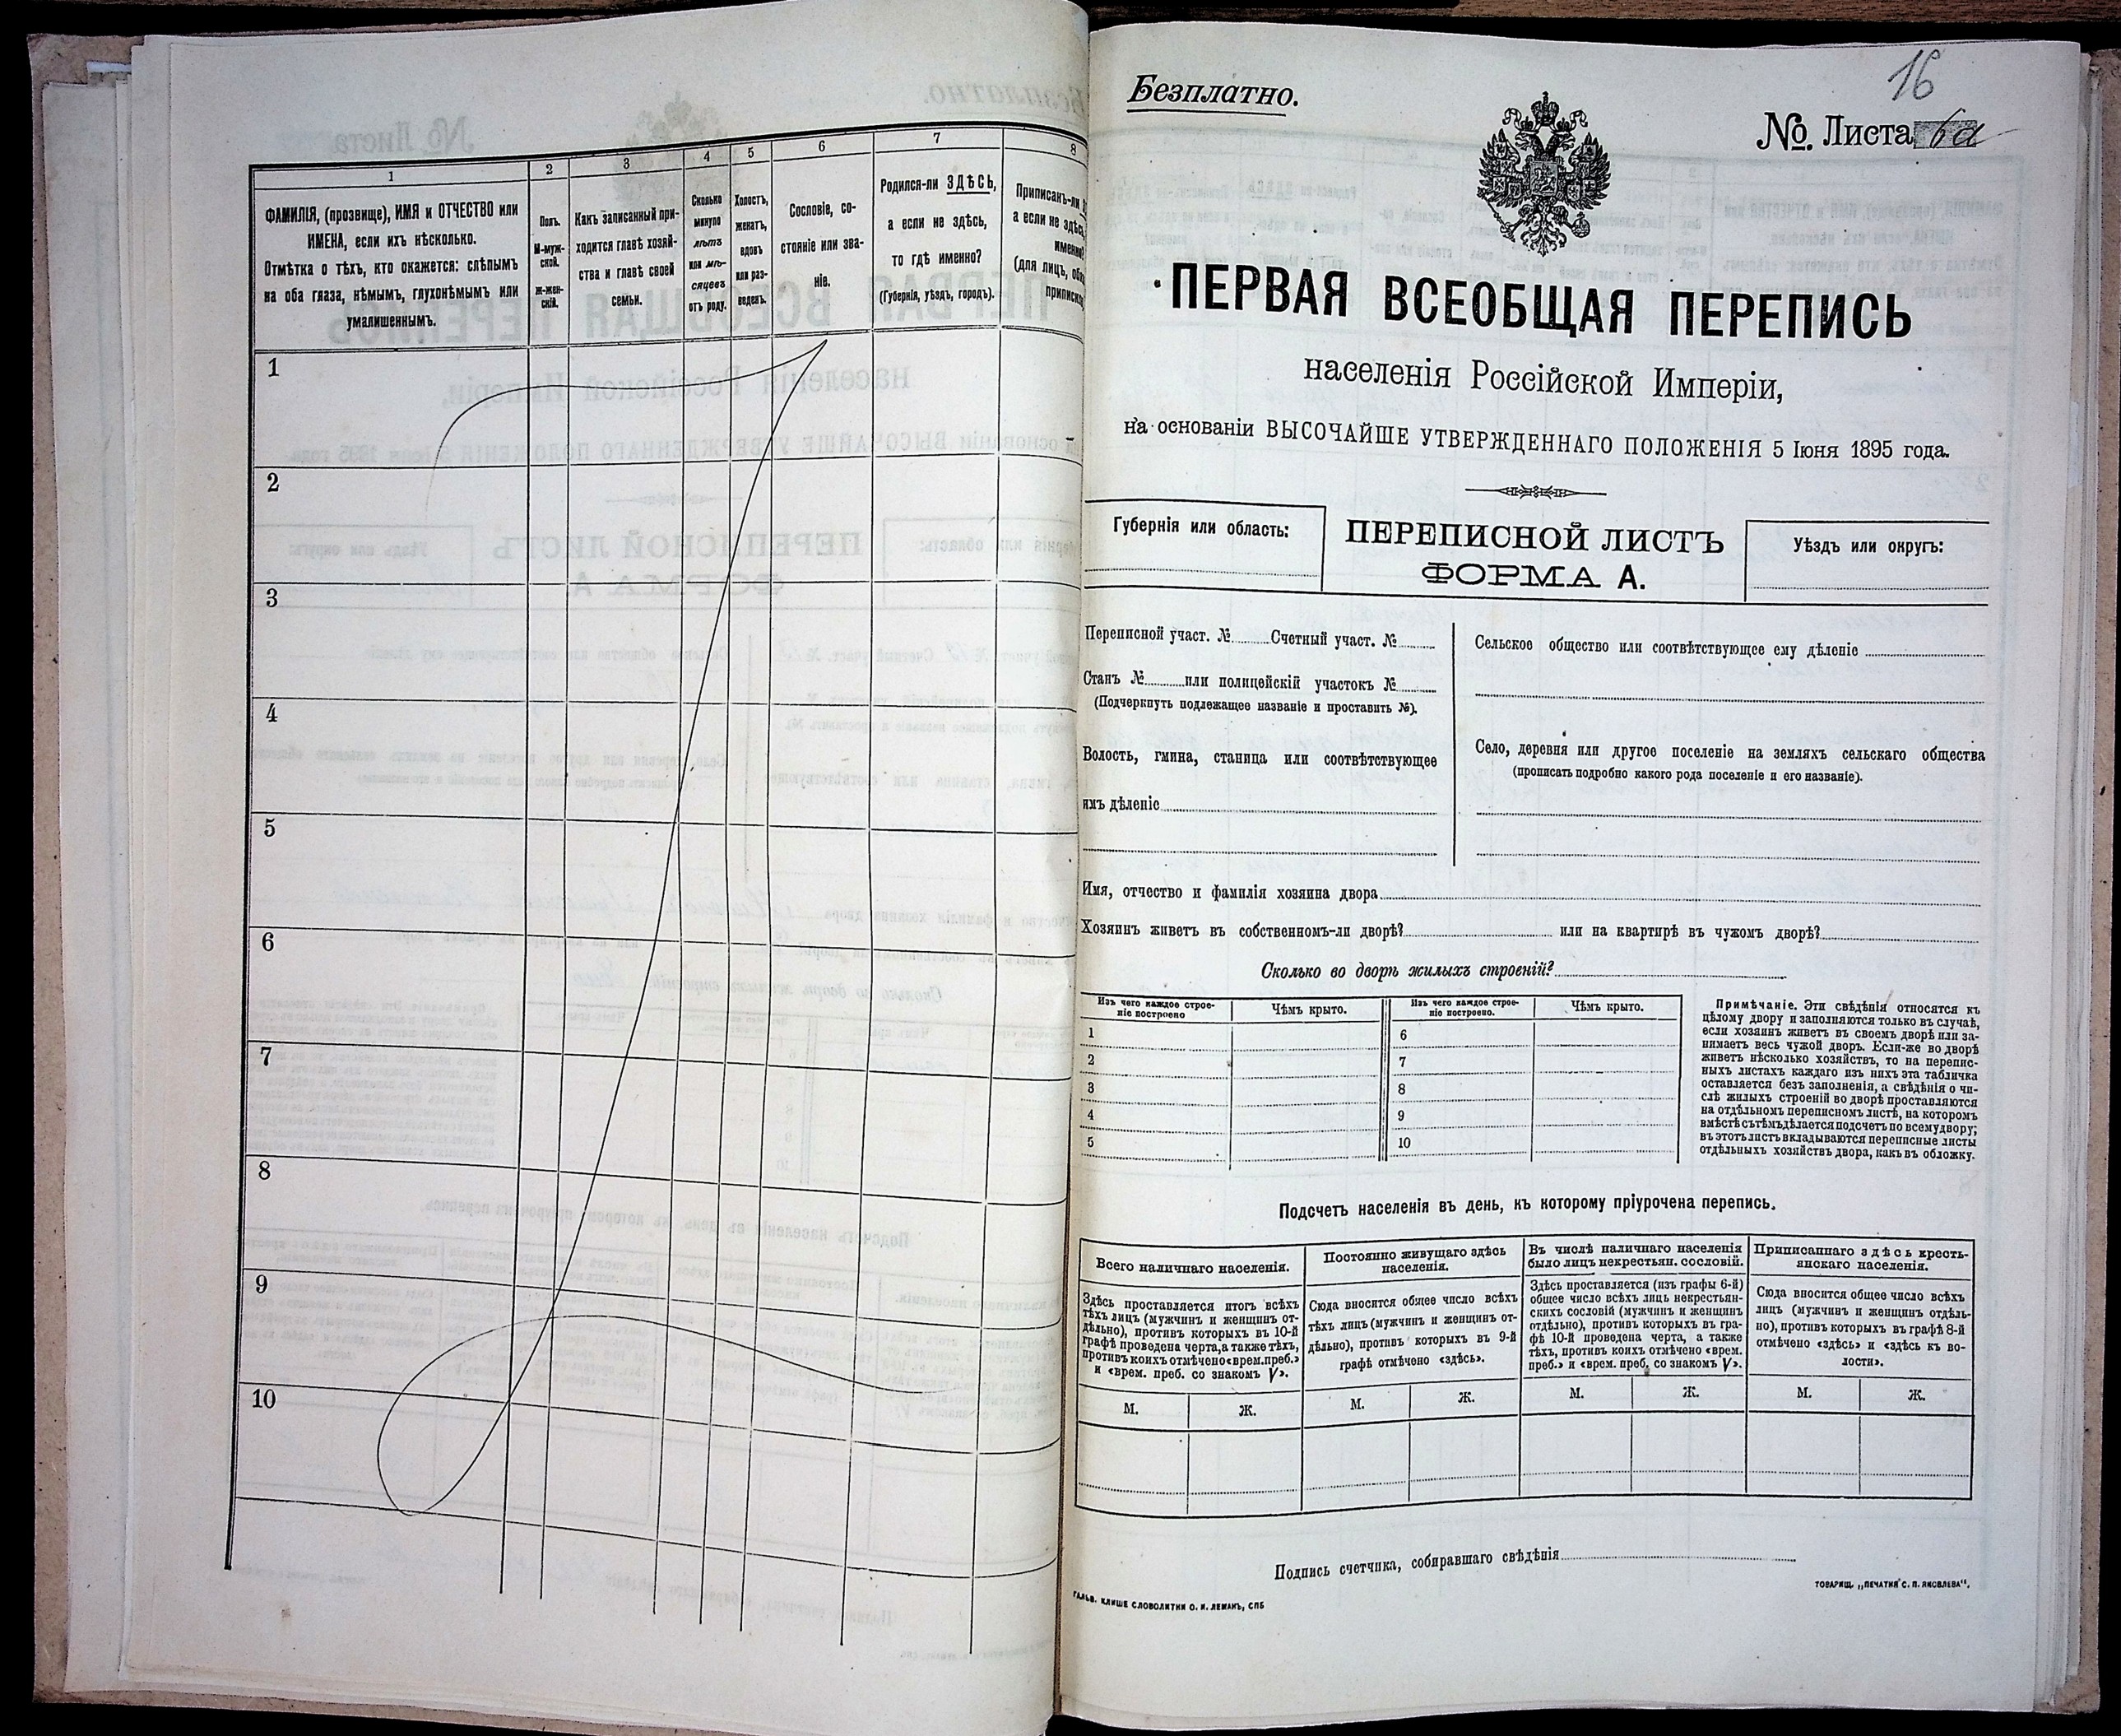 1
2
3
4
5
6
7
8
ФАМИЛІЯ, (прозвище), ИМЯ и ОТЧЕСТВО или
ИМЕНА, если ихъ нѣсколько.
Отмѣтка о тѣхъ, кто окажется: слѣпымъ
на оба глаза, нѣмымъ, глухонѣмымъ или
умалишеннымъ.
Полъ.
М-муж-
ской.
Ж-жен-
скій.
Какъ записанный при-
ходится главѣ хозяй-
ства и главѣ своей
семьи.
Сколько
минуло
лѣтъ
или мѣ-
сяцевъ
отъ роду.
Холостъ,
женатъ,
вдовъ
или раз-
веденъ.
Сословіе, со-
стояніе или зва-
ніе.
Родился-ли ЗДѢСЬ,
а если не здѣсь,
то гдѣ именно?
(Губернія, уѣздъ, городъ).
Приписанъ-ли
а если не здѣсь
именно
(для лицъ,
1
2
3
4
5
6
7
8
9
10
16
Безплатно.
№. Листа 6а
ПЕРВАЯ ВСЕОБЩАЯ ПЕРЕПИСЬ
населенія Россійской Имперіи,
на основаніи ВЫСОЧАЙШЕ УТВЕРЖДЕННАГО ПОЛОЖЕНІЯ 5 Іюня 1895 года.
Губернія или область:
ПЕРЕПИСНОЙ ЛИСТЪ
ФОРМА А.
Уѣздъ или округъ:
Переписной участ. № Счетный участ. №
Станъ № или полицейскій участокъ №
(Подчеркнуть подлежащее названіе и проставить №).
Волость, гмина, станица или соотвѣтствующее
имъ дѣленіе
Сельское общество или соотвѣтствующее ему дѣленіе
Село, деревня или другое поселеніе на земляхъ сельскаго общества
(прописать подробно какого рода поселеніе и его названіе).
Имя, отчество и фамилія хозяина двора
Хозяинъ живетъ въ собственномъ-ли дворѣ? или на квартирѣ въ чужомъ дворѣ?
Сколько во дворѣ жилыхъ строеній?
Изъ чего каждое строе-
ніе построено
Чѣмъ крыто.
Изъ чего каждое строе-
ніе построено.
Чѣмъ крыто.
1
2
3
4
5
6
7
8
9
10
Примѣчаніе. Эти свѣдѣнія относятся къ
цѣлому двору и заполняются только въ случаѣ,
если хозяинъ живетъ въ своемъ дворѣ или за-
нимаетъ весь чужой дворъ. Если-же во дворѣ
живетъ нѣсколько хозяйствъ, то на перепис-
ныхъ листахъ каждаго изъ нихъ эта табличка
оставляется безъ заполненія, а свѣдѣнія о чи-
слѣ жилыхъ строеній во дворѣ проставляются
на отдѣльномъ переписномъ листѣ, на которомъ
вмѣстѣ съ тѣмъ дѣлается подсчетъ по всему двору;
въ этотъ листъ вкладываются переписные листы
отдѣльныхъ хозяйствъ двора, какъ въ обложку.
Подсчетъ населенія въ день, къ которому пріурочена перепись.
Всего наличнаго населенія.
Здѣсь проставляется итогъ всѣхъ
тѣхъ лицъ (мужчинъ и женщинъ от-
дѣльно), противъ которыхъ въ 10-й
графѣ проведена черта, а также тѣхъ,
противъ коихъ отмѣчено «врем. преб.»
и «врем. преб. со знакомъ V».
М.
Ж.
Постоянно живущаго здѣсь
населенія.
Сюда вносится общее число всѣхъ
тѣхъ лицъ (мужчинъ и женщинъ от-
дѣльно), противъ которыхъ въ 9-й
графѣ отмѣчено «здѣсь».
М.
Ж.
Въ числѣ наличнаго населенія
было лицъ некрестьян. сословій.
Здѣсь проставляется (изъ графы 6-й)
общее число всѣхъ лицъ некрестьян-
скихъ сословій (мужчинъ и женщинъ
отдѣльно), противъ которыхъ въ гра-
фѣ 10-й проведена черта, а также
тѣхъ, противъ коихъ отмѣчено «врем.
преб.» и «врем. преб. со знакомъ V».
М.
Ж.
Приписаннаго здѣсь кресть-
янскаго населенія.
Сюда вносится общее число всѣхъ
лицъ (мужчинъ и женщинъ отдѣль-
но), противъ которыхъ въ графѣ 8-й
отмѣчено «здѣсь» и «здѣсь къ во-
лости».
М.
Ж.
Подпись счетчика, собиравшаго свѣдѣнія
ГАЛЬВ. КЛИШЕ СЛОВОЛИТНИ О. И. ЛЕМАНЪ, СПБ
ТОВАРИЩ. „ПЕЧАТНЯ С. П. ЯКОВЛЕВА“.